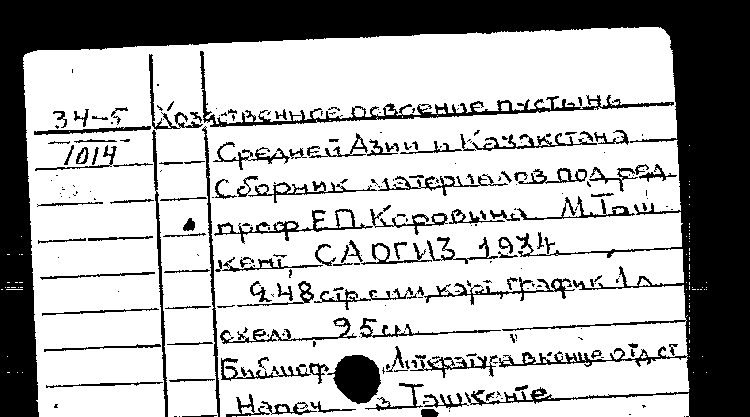 34-5 Хозяйственное освоение пустынь
1014 Средней Азии и Казахстана
Сборник материалов под ред
проф. Е.П. Коровина М. Таш
кент, САОГИЗ, 1934.
248 стр с илл, карт, график 1 л
схем, 25 см
Библиогр Литература в конце отд ст
Напеч в Ташкенте